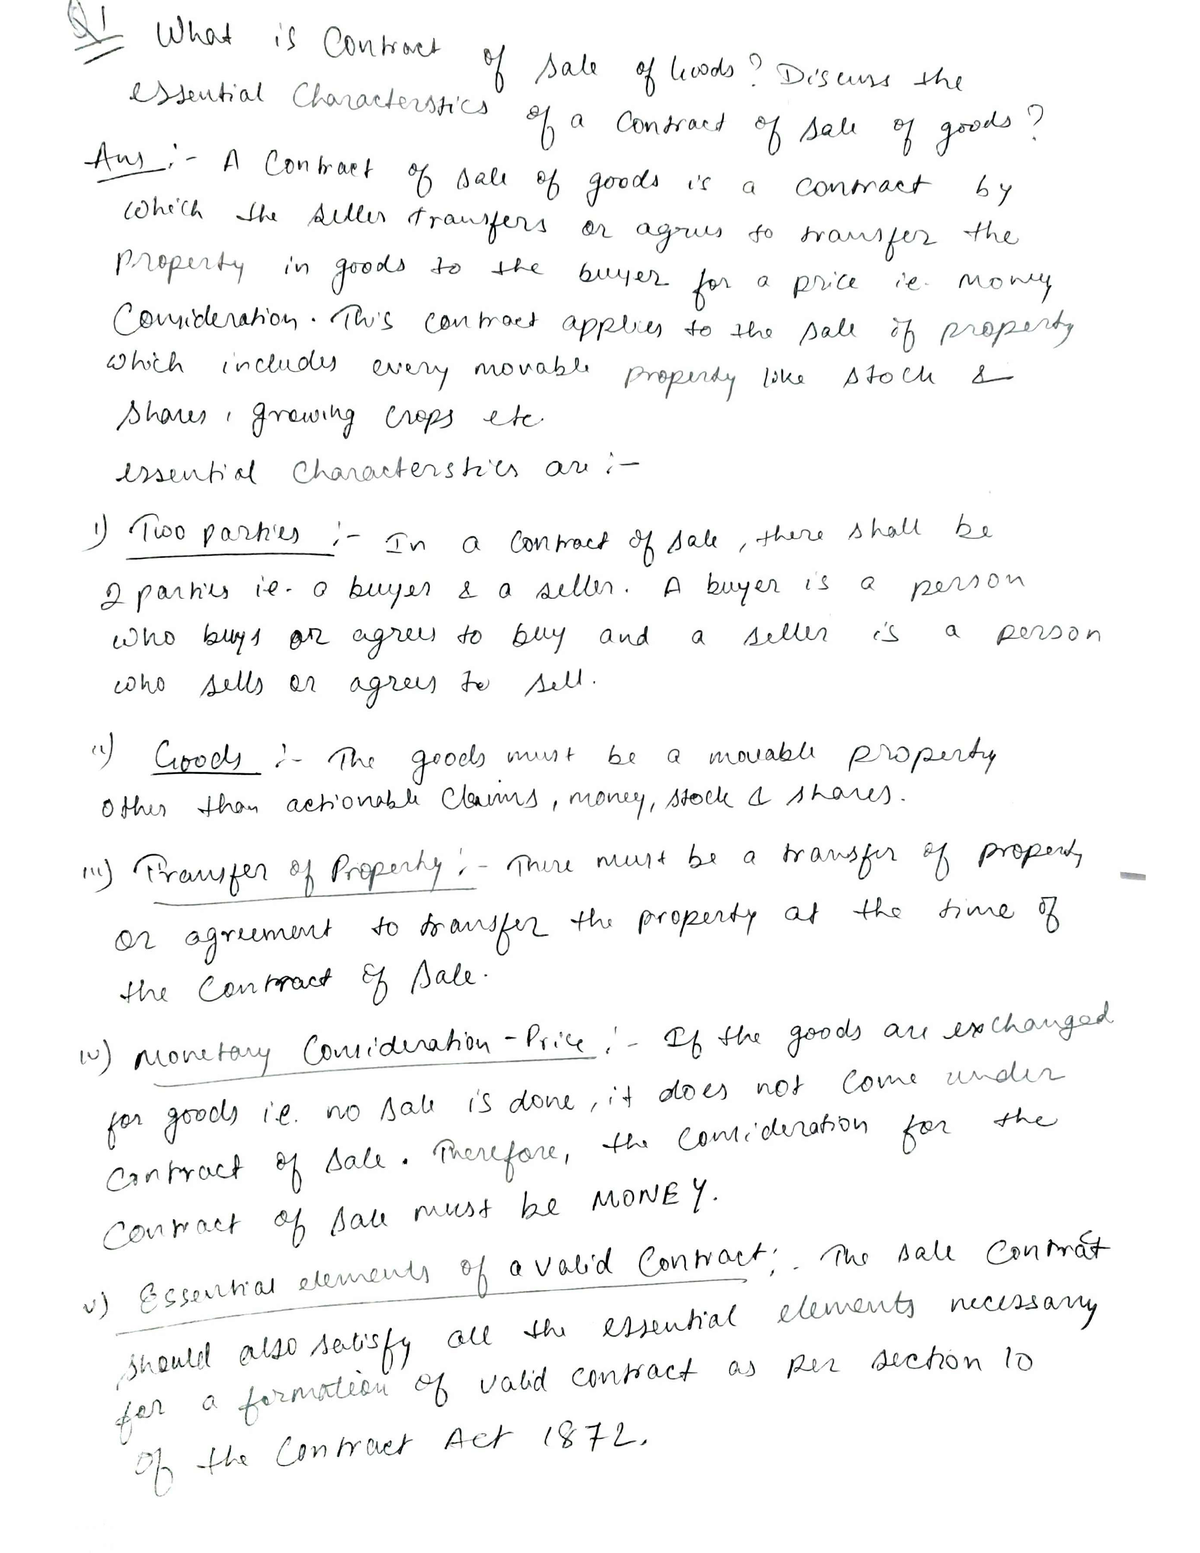 Q1 What is Contract of sale of Goods? Discuss the
essential Characterstics of a Contract of sale of goods?
Ans :- A Contract of sale of goods is a contract by
which the seller transfers or agrees to transfer the
Property in goods to the buyer for a price ie. money
Consideration. This contract applies to the sale of property
which includes every movable property like stock &
shares, growing crops etc.
essential Characterstics are :-
i) Two parties :- In a Contract of sale, there shall be
2 parties ie. a buyer & a seller. A buyer is a person
who buys or agrees to buy and a seller is a person
who sells or agrees to sell.
ii) Goods :- The goods must be a movable property
other than actionable Claims, money, stock & shares.
iii) Transfer of Property :- There must be a transfer of property
or agreement to transfer the property at the time of
the Contract of Sale.
iv) Monetary Consideration - Price :- If the goods are exchanged
for goods i.e. no sale is done, it does not come under
Contract of Sale. Therefore, the consideration for the
Contract of sale must be MONEY.
v) Essential elements of a valid Contract :- The sale Contrat
should also satisfy all the essential elements necessary
for a formation of valid contract as per section 10
of the Contract Act 1872.